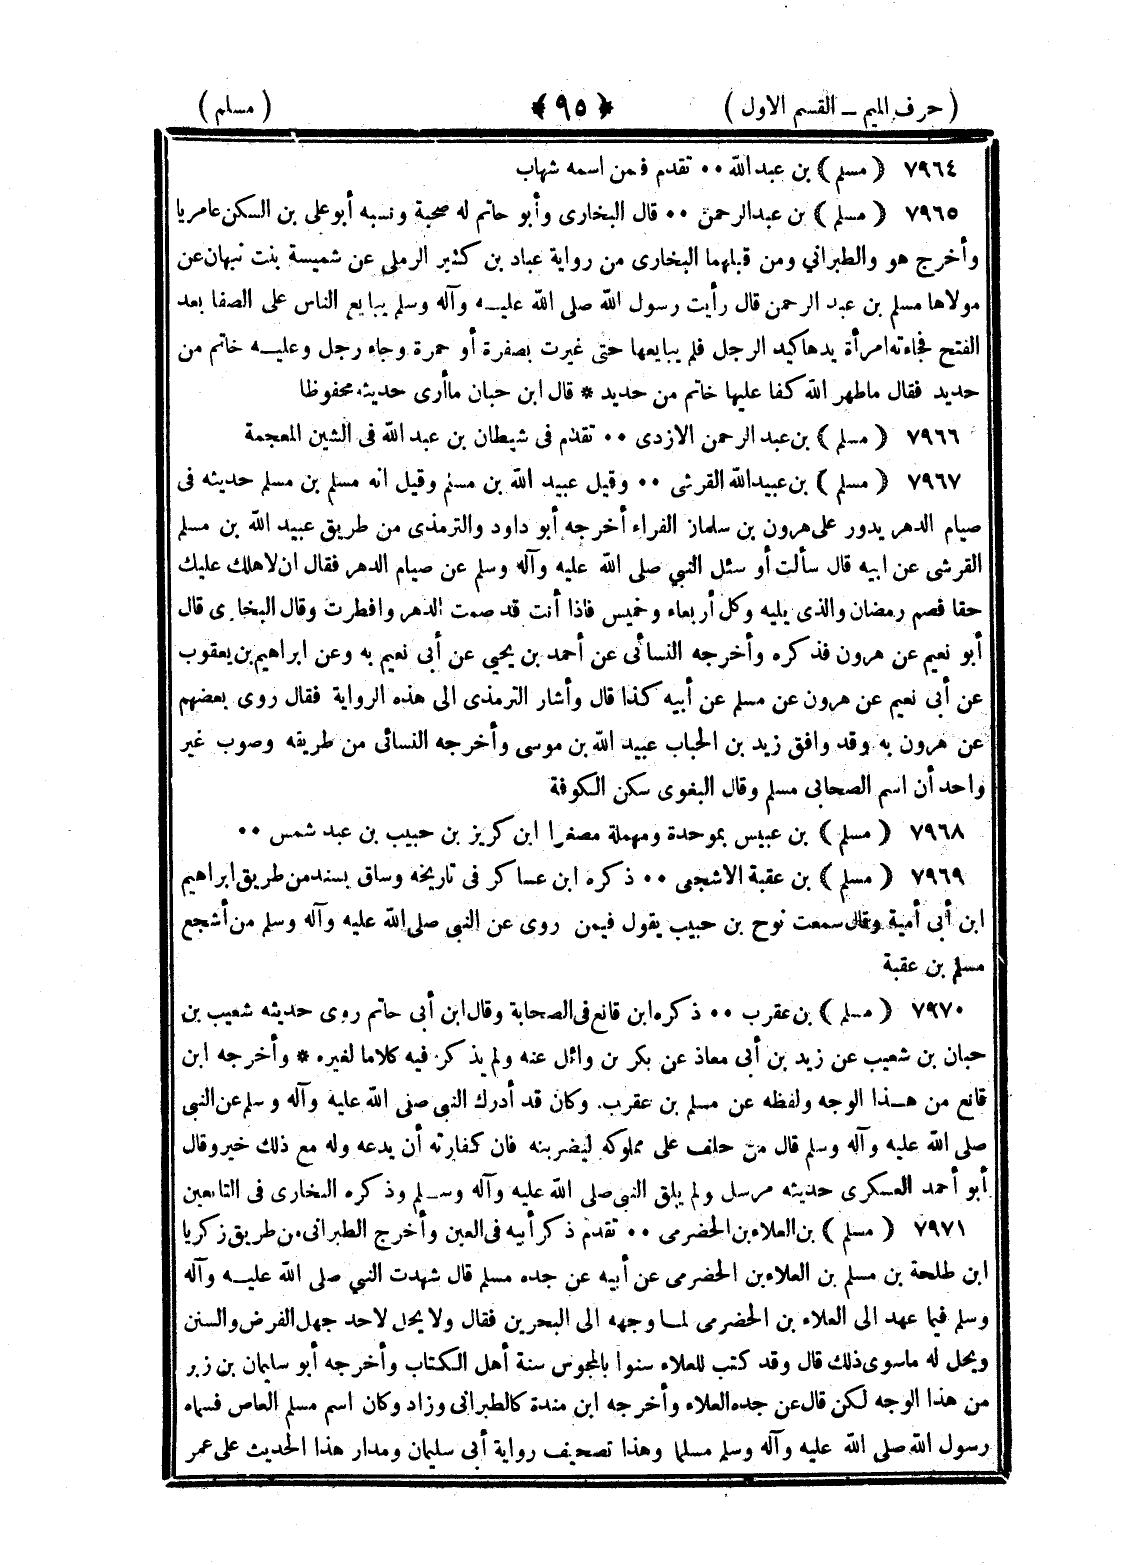 ( حرف الميم ــ القسم الاول ) ﴿ ٩٥ ﴾ ( مسلم )
٧٩٦٤ ( مسلم ) بن عبد الله ٠٠ تقدم فمن اسمه شهاب
٧٩٦٥ ( مسلم ) بن عبدالرحمن ٠٠ قال البخارى وأبو حاتم له صحبة ونسبه أبوعلى بن السكن عامريا
وأخرج هو والطبراني ومن قبلهما البخارى من رواية عباد بن كثير الرملي عن شميسة بنت نبهان عن
مولاها مسلم بن عبد الرحمن قال رأيت رسول الله صلى الله عليــه وآله وسلم يبايع الناس على الصفا بعد
الفتح فجاءته امرأة يدها كيد الرجل فلم يبايعها حتى غيرت بصفرة أو حمرة وجاء رجل وعليــه خاتم من
حديد فقال ماطهر الله كفا عليها خاتم من حديد * قال ابن حبان ماأرى حديثه محفوظا
٧٩٦٦ ( مسلم ) بن عبد الرحمن الازدى ٠٠ تقدم فى شيطان بن عبد الله فى الشين المعجمة
٧٩٦٧ ( مسلم ) بن عبيدالله القرشى ٠٠ وقيل عبيد الله بن مسلم وقيل انه مسلم بن مسلم حديثه فى
صيام الدهر يدور على هرون بن سلمان الفراء أخرجه أبو داود والترمذى من طريق عبيد الله بن مسلم
القرشى عن ابيه قال سألت أو سئل النبي صلى الله عليه وآله وسلم عن صيام الدهر فقال ان لاهلك عليك
حقا فصم رمضان والذى يليه وكل أربعاء وخميس فاذا أنت قد صمت الدهر وافطرت وقال البخارى قال
أبو نعيم عن هرون فذكره وأخرجه النسائى عن أحمد بن يحيي عن أبى نعيم به وعن ابراهيم بن يعقوب
عن أبى نعيم عن هرون عن مسلم عن أبيه كذا قال وأشار الترمذى الى هذه الرواية فقال روى بعضهم
عن هرون به وقد وافق زيد بن الحباب عبيد الله بن موسى وأخرجه النسائى من طريقه وصوب غير
واحد أن اسم الصحابى مسلم وقال البغوى سكن الكوفة
٧٩٦٨ ( مسلم ) بن عبيس بموحدة ومهملة مصغرا ابن كريز بن حبيب بن عبد شمس ٠٠
٧٩٦٩ ( مسلم ) بن عقبة الاشجعى ٠٠ ذكره ابن عساكر فى تاريخه وساق بسنده من طريق ابراهيم
ابن أبى أمية وقال سمعت نوح بن حبيب يقول فيمن روى عن النبي صلى الله عليه وآله وسلم من أشجع
مسلم بن عقبة
٧٩٧٠ ( مسلم ) بن عقرب ٠٠ ذكره ابن قانع فى الصحابة وقال ابن أبى حاتم روى حديثه شعيب بن
حبان بن شعيب عن زيد بن أبى معاذ عن بكر بن وائل عنه ولم يذكر فيه كلاما لغيره * وأخرجه ابن
قانع من هــذا الوجه ولفظه عن مسلم بن عقرب. وكان قد أدرك النبي صلى الله عليه وآله وسلم عن النبي
صلى الله عليه وآله وسلم قال من حلف على مملوكه ليضربنه فان كفارته أن يدعه وله مع ذلك خير وقال
أبو أحمد العسكرى حديثه مرسل ولم يلق النبي صلى الله عليه وآله وســلم وذكره البخارى فى التابعين
٧٩٧١ ( مسلم ) بن العلاء بن الحضرمى ٠٠ تقدم ذكر أبيه فى العين وأخرج الطبرانى من طريق زكريا
ابن طلحة بن مسلم بن العلاء بن الحضرمى عن أبيه عن جده مسلم قال شهدت النبي صلى الله عليــه وآله
وسلم فيما عهد الى العلاء بن الحضرمى لمــا وجهه الى البحرين فقال ولا يحل لاحد جهل الفرض والسنن
ويحل له ماسوى ذلك قال وقد كتب للعلاء سنوا بالمجوس سنة أهل الكتاب وأخرجه أبو سليمان بن زبر
من هذا الوجه لكن قال عن جده العلاء وأخرجه ابن مندة كالطبرانى وزاد وكان اسم مسلم العاص فسماه
رسول الله صلى الله عليه وآله وسلم مسلما وهذا تصحيف رواية أبى سليمان ومدار هذا الحديث على عمر